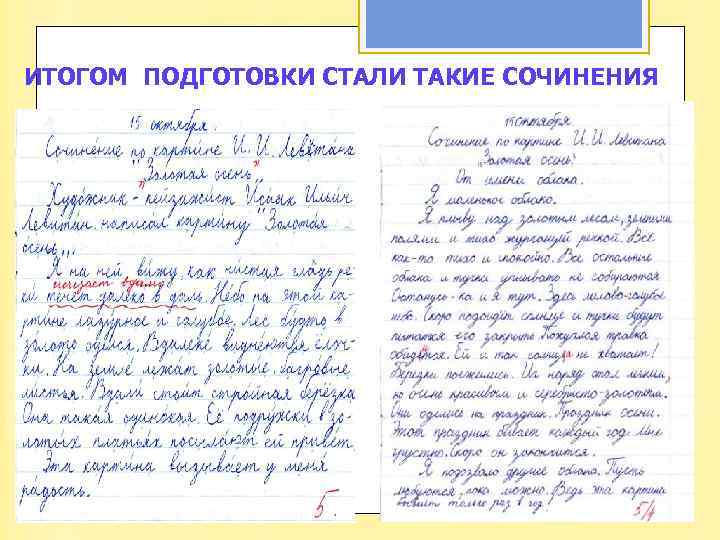 ИТОГОМ ПОДГОТОВКИ СТАЛИ ТАКИЕ СОЧИНЕНИЯ
15 октября.
Сочинение по картине И. И. Левитана
"Золотая осень"
Художник - пейзажист Исаак Ильич
Левитан написал картину "Золотая
осень".
Я на ней вижу, как чистая гладь ре-
исчезает вдали
ки течёт далеко в даль. Небо на этой кар-
тине лазурное и голубое. Лес будто в
золото оделся. Вдалеке виднеются ёлоч-
ки. На земле лежат золотые, багровые
листья. Вдали стоит стройная берёзка
Она такая одинокая. Её подружки в зо-
лотых платьях посылают ей привет.
Эта картина вызывает у меня
радость.
5.
15 октября
Сочинение по картине И. И. Левитана
"Золотая осень"
От имени облака.
Я маленькое облако.
Я плыву над золотым лесом, зелёными
полями и тихо журчащей речкой. Всё
как-то тихо и спокойно. Все остальные
облака и тучки уплывать не собираются
Останусь-ка и я тут. Здесь лилово-голубое
небо. Скоро подойдёт солнце и тучки будут
пытаться его закрыть. Пожухлая травка
обидется. Ей и так солнца не хватает!
Берёзки пожелтели. Их наряд стал лёгким,
но очень красивым и серебристо-золотым.
Они оделись на праздник. Праздник осени.
Этот праздник бывает каждый год. Мне
грустно. Скоро он закончится.
Я подозвало другие облака. Пусть
любуются, пока можно. Ведь эта картина
бывает только раз в год!
5/4